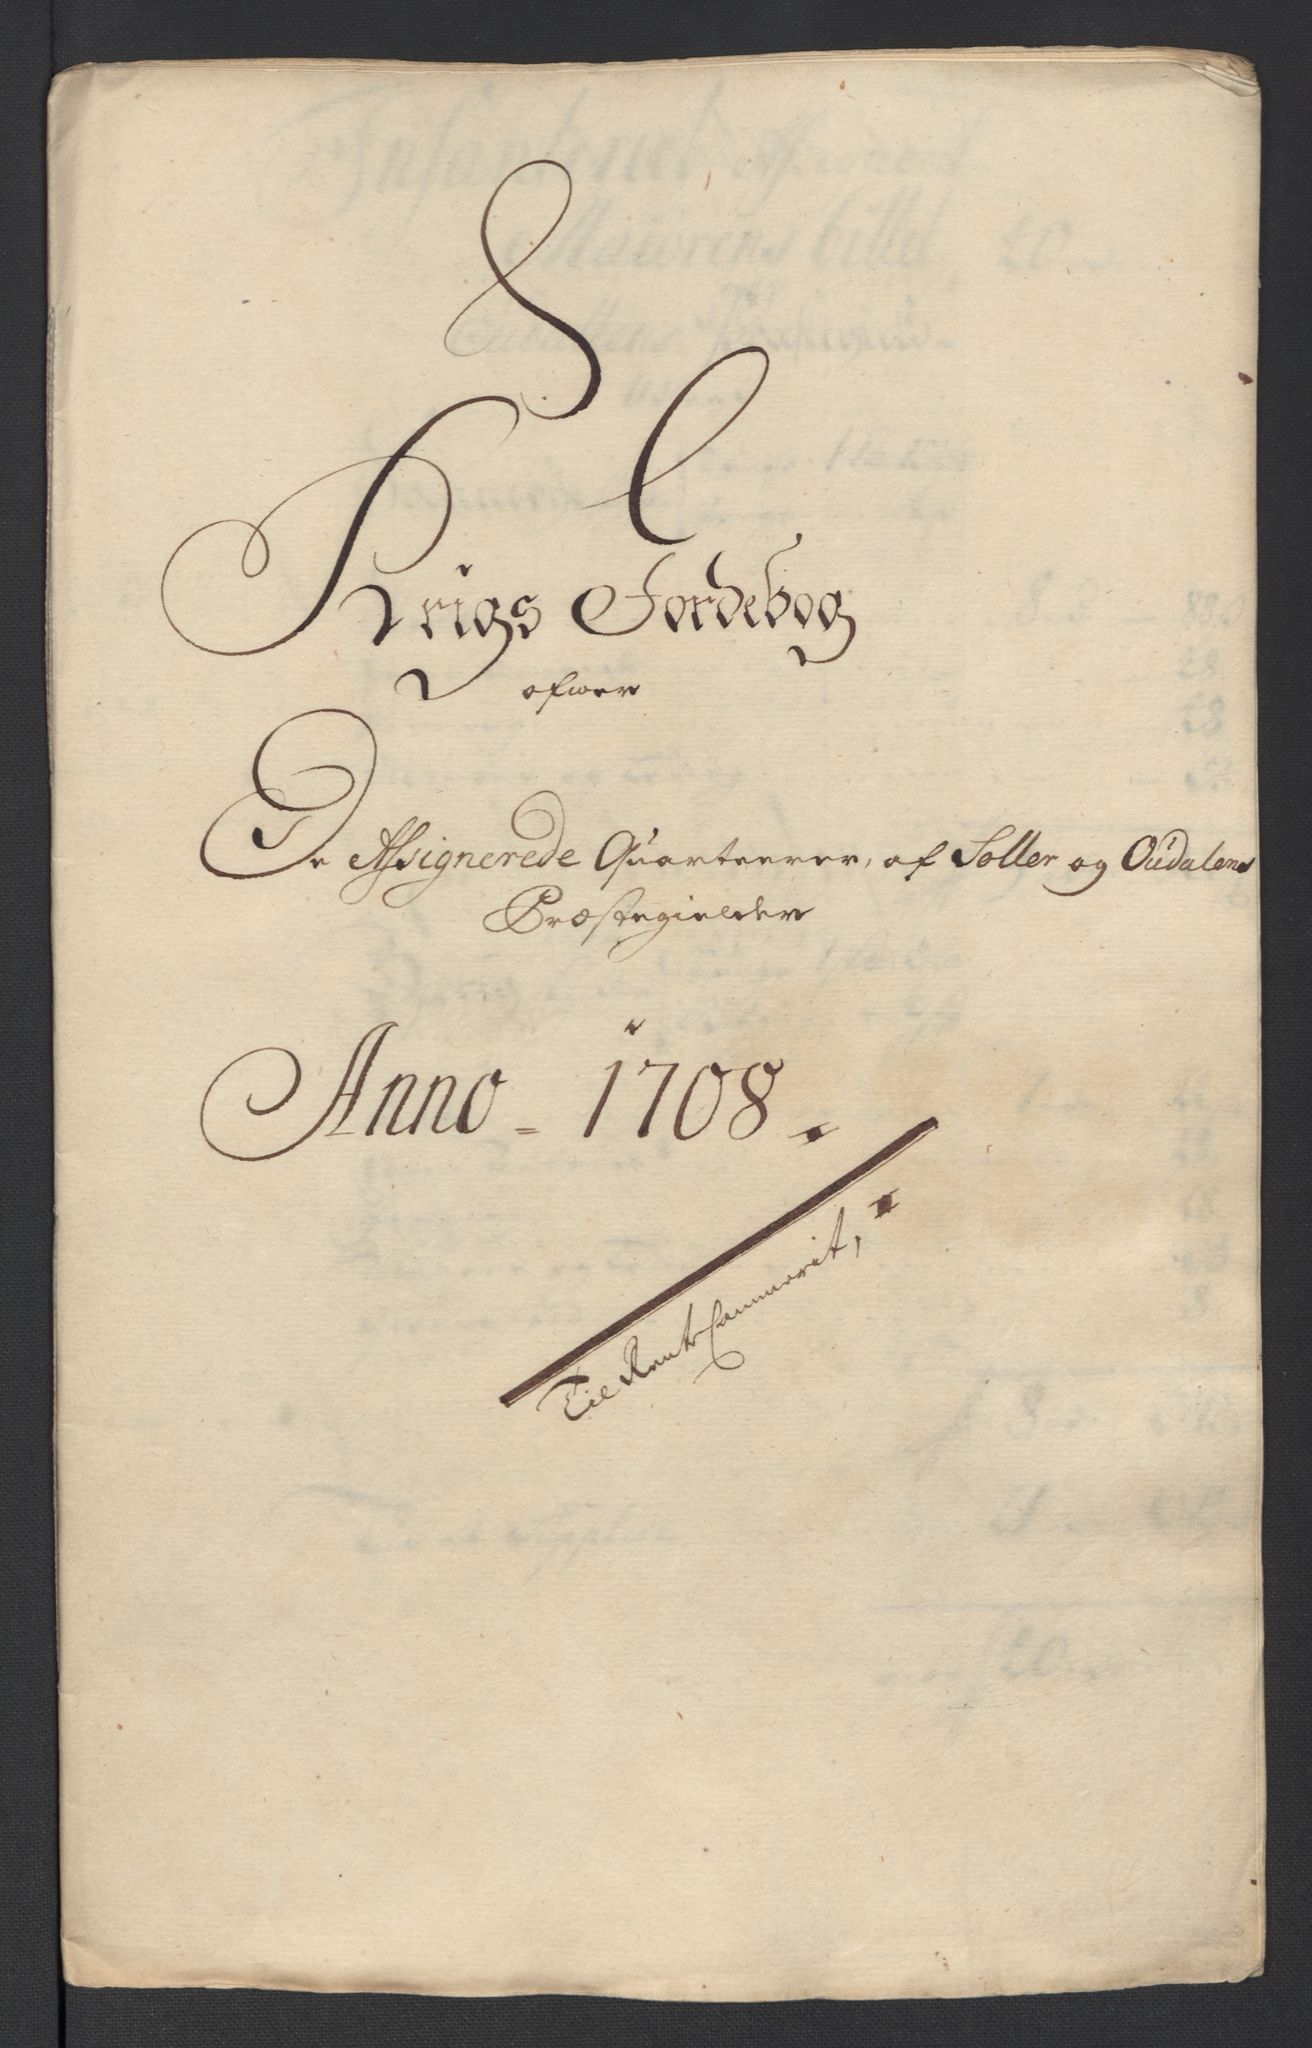 Krigs Jordebog
ofwer
De Assignerede Quarteerer, af Soller og Oudalens
Præstegielder
Anno - 1708.
Til RenteCammerit,